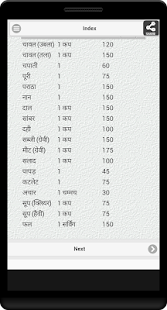 Index
SHARE
चावल (उबला) 1 कप 120
चावल (तला) 1 कप 150
चपाती 1 60
पूरी 1 75
पराठा 1 150
नान 1 150
दाल 1 कप 150
सांबर 1 कप 150
दही 1 कप 100
सब्जी (ग्रेवी) 1 कप 150
मीट (ग्रेवी) 1 कप 175
सलाद 1 कप 100
पापड़ 1 45
कटलेट 1 75
अचार 1 चम्मच 30
सूप (क्लियर) 1 कप 75
सूप (हैवी) 1 कप 75
फल 1 सर्विंग 75
Next